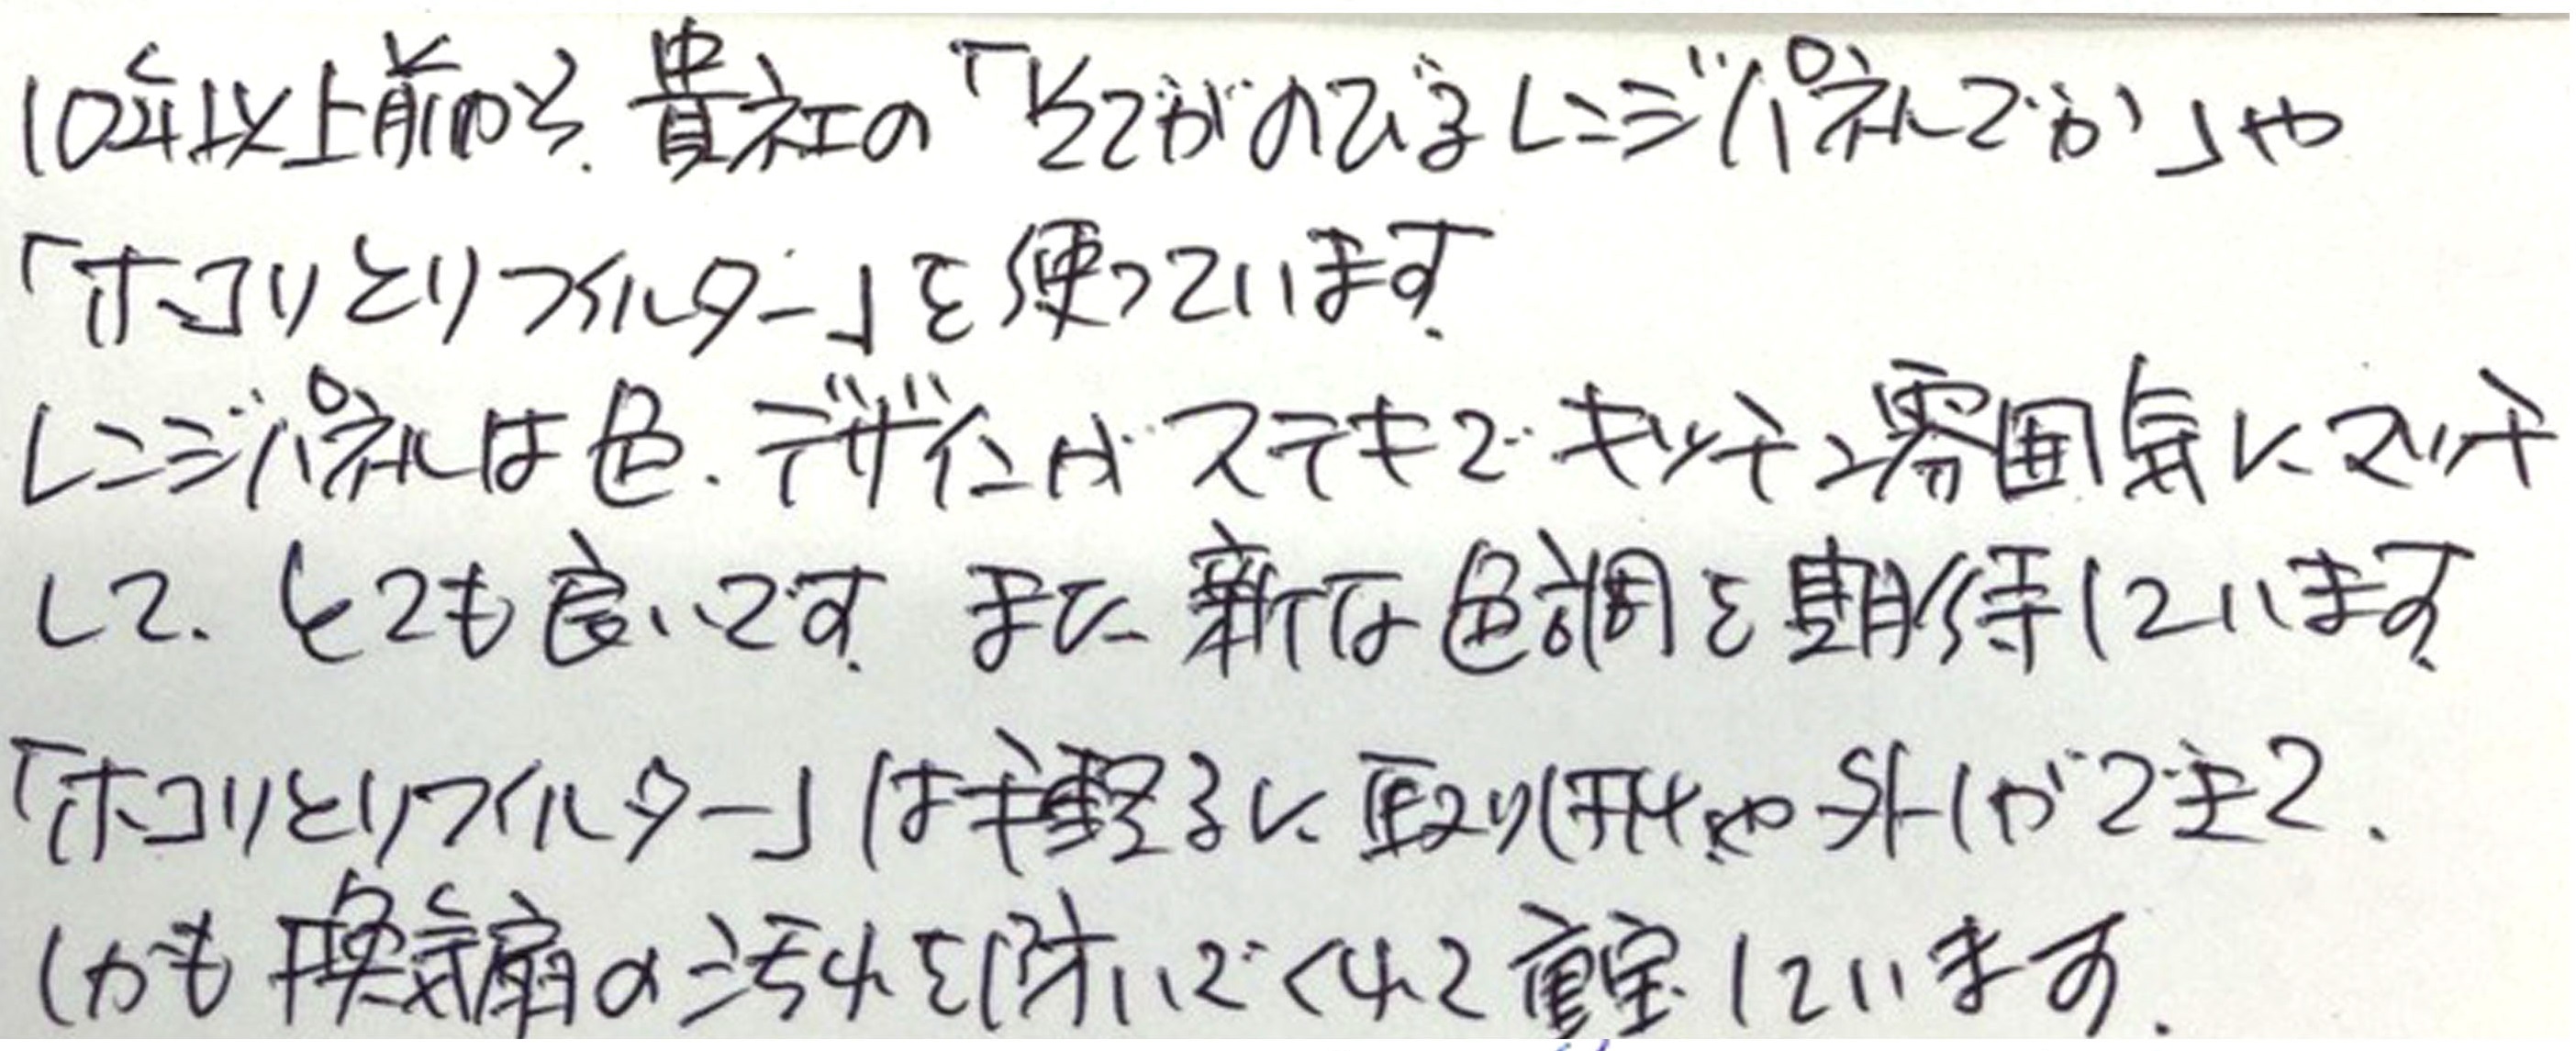 10年以上前から、貴社の「そでがのびるレンジパネルでか」や
「ホコリとりフィルター」を使っています。
レンジパネルは色、デザインがステキで、キッチン雰囲気にマッチ
して、とても良いです。また新な色調を期待しています。
「ホコリとりフィルター」は手軽るに取り付けや外しができて、
しかも換気扇の汚れを防いでくれて重宝しています。